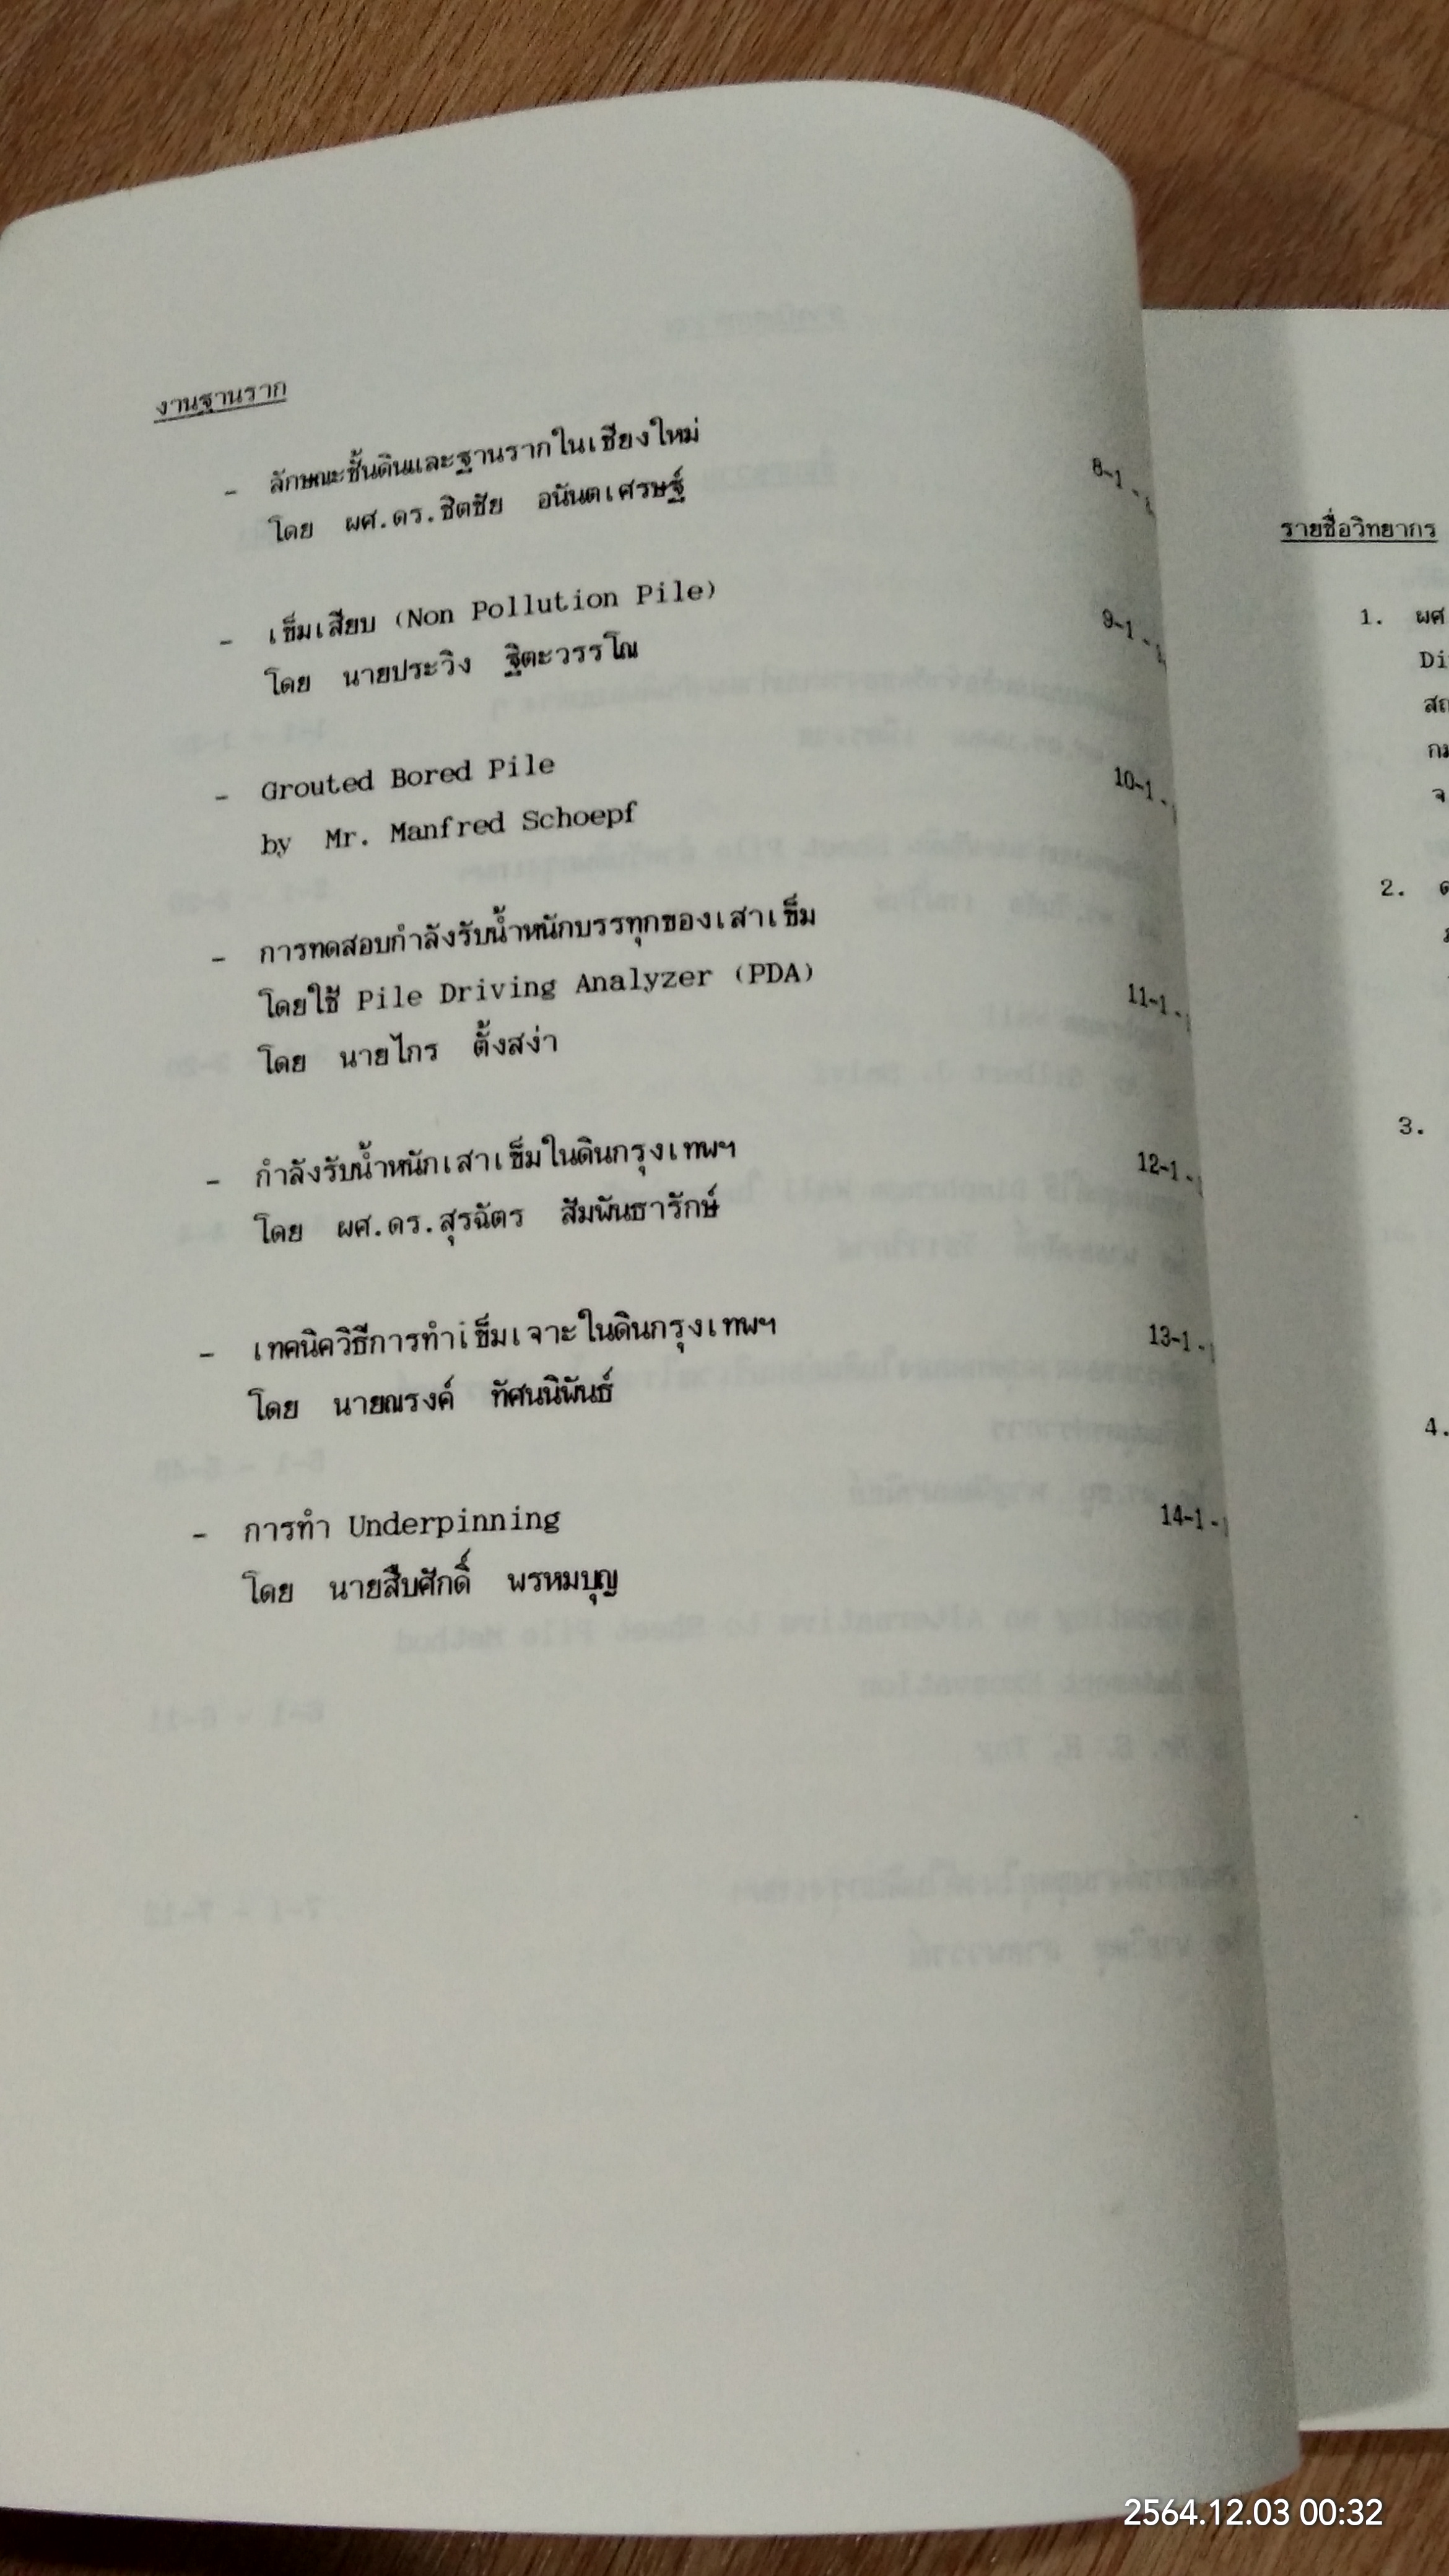 งานฐานราก
- ลักษณะชั้นดินและฐานรากในเชียงใหม่ 8-1 -
โดย ผศ.ดร.ชิตชัย อนันตเศรษฐ์
- เข็มเสียบ (Non Pollution Pile) 9-1 -
โดย นายประวิง ฐิตะวรรโณ
- Grouted Bored Pile 10-1 -
by Mr. Manfred Schoepf
- การทดสอบกำลังรับน้ำหนักบรรทุกของเสาเข็ม
โดยใช้ Pile Driving Analyzer (PDA) 11-1 -
โดย นายไกร ตั้งสง่า
- กำลังรับน้ำหนักเสาเข็มในดินกรุงเทพฯ 12-1 -
โดย ผศ.ดร.สุรฉัตร สัมพันธารักษ์
- เทคนิควิธีการทำเข็มเจาะในดินกรุงเทพฯ 13-1 -
โดย นายณรงค์ ทัศนนิพันธ์
- การทำ Underpinning 14-1 -
โดย นายสืบศักดิ์ พรหมบุญ
รายชื่อวิทยากร
1. ผศ
Di
สถ
กม
จ
2.
3.
4.
2564.12.03 00:32